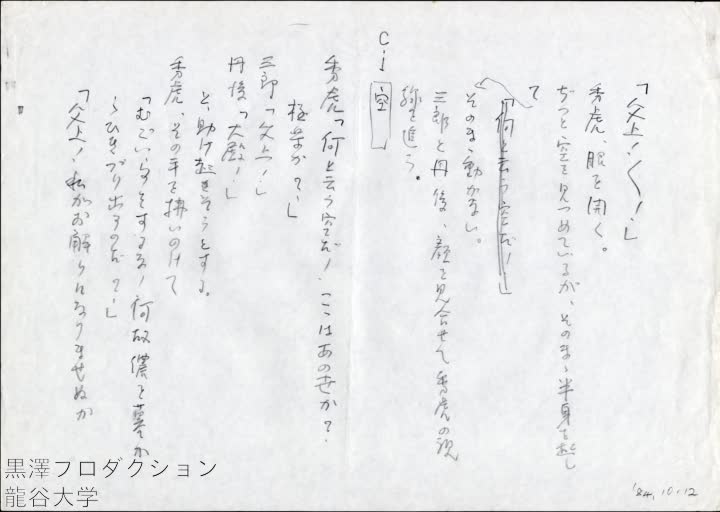 「父上！〳〵！」
秀虎、眼を開く。
ぢっと空を見つめているが、そのまゝ半身を起し
て
「何と云う空だ！」
そのまゝ動かない。
三郎と丹後、顔を見合せて秀虎の視
線を追う。
C-i 空
秀虎「何と云う空だ！ ここはあの世か？
極楽か？」
三郎「父上！」
丹後「大殿！」
と、助け起そうとする。
秀虎、その手を払いのけて
「むごい事をするな！ 何故儂を墓か
らひきずり出すのだ？」
「父上！ 私がお解りになりませぬか
'84.10.12
黒澤プロダクション
龍谷大学